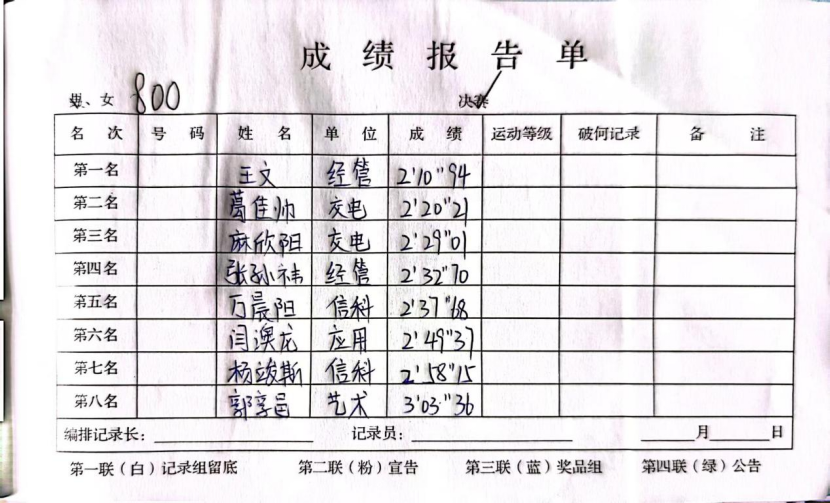 成绩报告单
男、女 800 决赛
名次 号码 姓名 单位 成绩 运动等级 破何记录 备注
第一名 王文 经管 2'10"94
第二名 葛佳帅 交电 2'20"21
第三名 麻欣阳 交电 2'29"01
第四名 张孙祎 经管 2'32"70
第五名 万晨阳 信科 2'37"68
第六名 闫澳龙 应用 2'49"37
第七名 杨竣斯 信科 2'58"15
第八名 郭享邑 艺术 3'03"36
编排记录长： 记录员： 月 日
第一联（白）记录组留底 第二联（粉）宣告 第三联（蓝）奖品组 第四联（绿）公告